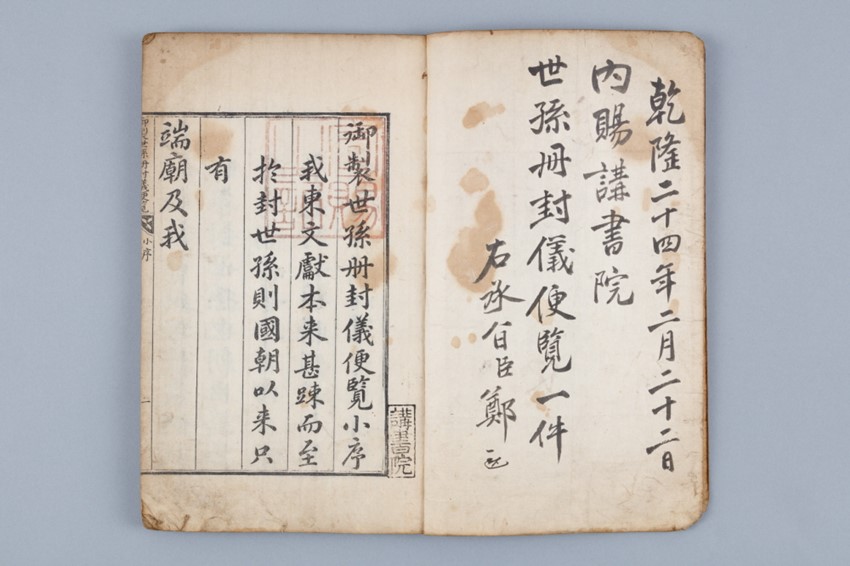 乾隆二十四年二月二十二日
內賜講書院
世孫冊封儀便覽一件
右承旨臣鄭
講書院
御製世孫冊封儀便覽小序
我東文獻本来甚踈而至
於封世孫則國朝以来只
有
端廟及我
御製世孫冊封儀便覽 小序 一